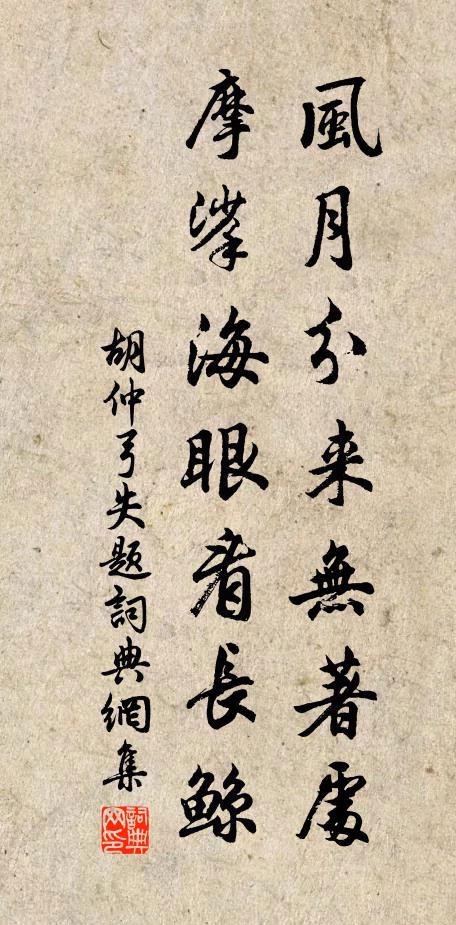 風月分来無著處
摩挲海眼看長鲸
胡仲弓失題詞典網集
詞典網印